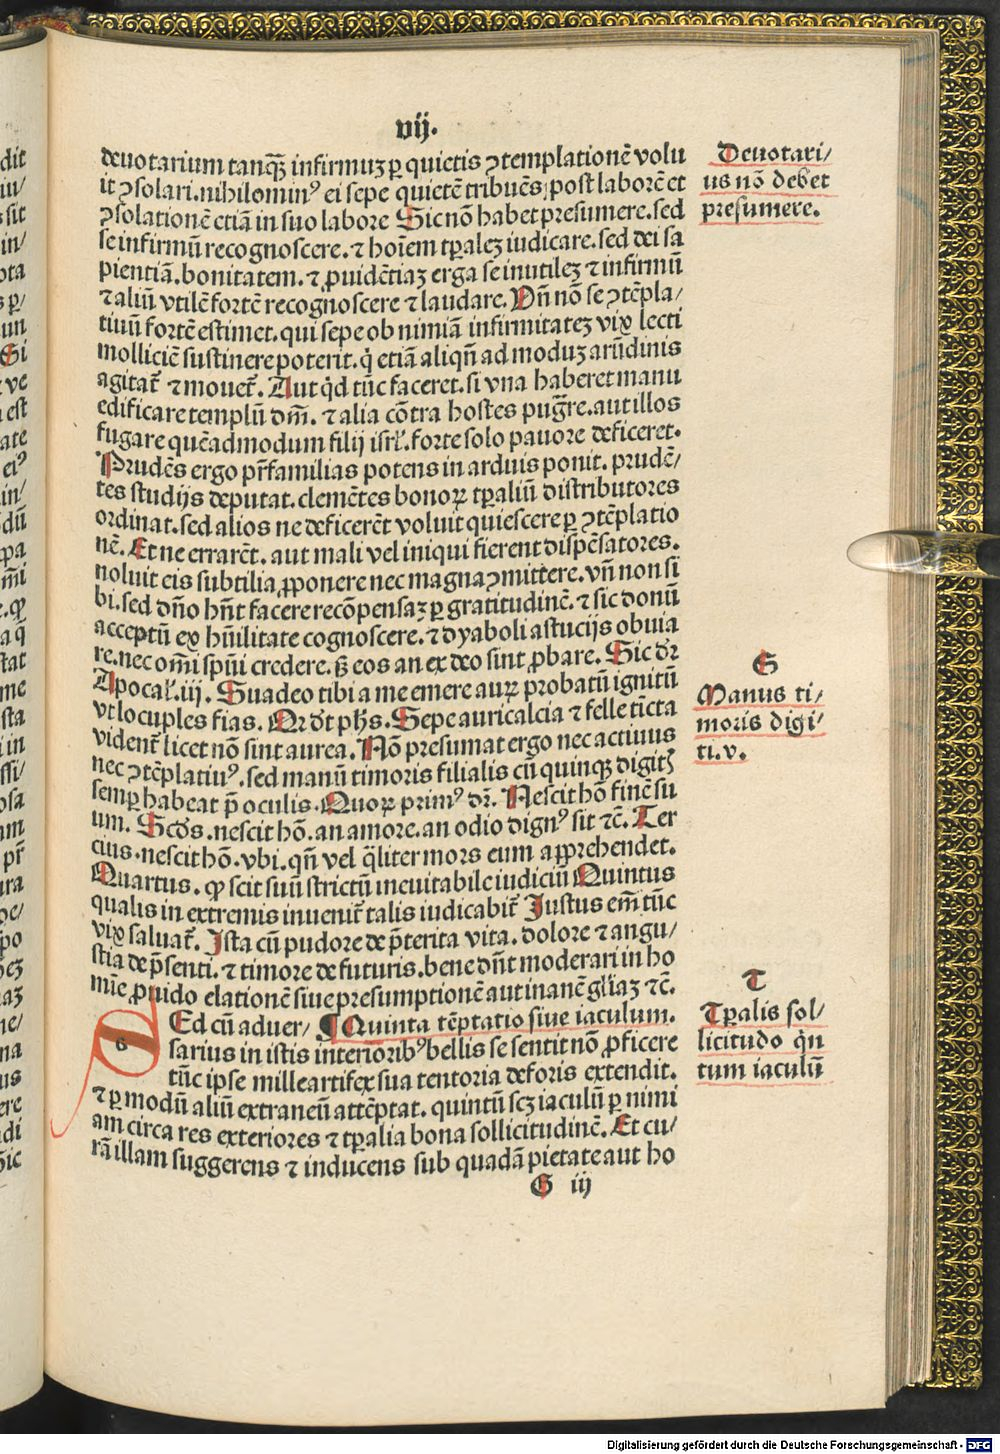 vij.
deuotarium tanqȝ̄ infirmuȝ ꝑ quietis ↄtemplationē volu
it ↄsolari. nihilominꝰ ei sepe quietē tribuēs, post laborē et
ↄsolationē etiā in suo labore Sic nō habet presumere. sed
se infirmū recognoscere. ⁊ hoīem tꝑaleȝ iudicare. sed dei sa
pientiā. bonitatem. ⁊ ꝓuidētiaȝ erga se inutileȝ ⁊ infirmū
⁊ aliū vtilē fortē recognoscere ⁊ laudare. Vn̄ nō se ↄtēpla/
tiuū fortē estimet. qui sepe ob nimiā infirmitateȝ vix lecti
molliciē sustinere poterit. q̇ etiā aliqn̄ ad moduȝ arūdinis
agitat̄ ⁊ mouet̄. Aut qͥd tūc faceret. si vna haberet manu
edificare templū dn̄i. ⁊ alia cōtra hostes pug̅re. aut illos
fugare quēadmodum filij isrl̓. forte solo pauore deficeret.
Prudēs ergo pr̄familias potens in arduis ponit. prudē/
tes studijs deputat. clemētes bonoꝝ tꝑaliū distributores
ordinat. sed alios ne deficerēt voluit quiescere ꝑ ↄtēplatio
nē. Et ne errarēt. aut mali vel iniqui fierent dispēsatores.
noluit eis subtilia ꝓponere nec magna ↄmittere. vn̄ non si
bi. sed dn̄o hn̄t facere recōpensaȝ ꝑ gratitudinē. ⁊ sic donū
acceptū ex hūilitate cognoscere. ⁊ dyaboli astucijs obuia
re. nec om̄i spūi credere. ẜȝ eos an ex deo sint ꝓbare. Sic dr̄
Apocal̓. iij. Suadeo tibi a me emere auꝝ probatū ignitū
vt locuples fias. Qꝛ dt̄ ph̄s. Sepe auricalcia ⁊ felle tīcta
vident̄ licet nō sint aurea. Nō presumat ergo nec actiuus
nec ↄtēplatiuꝰ. sed manū timoris filialis cū quinqȝ digitꝭ
semꝑ habeat p̄ oculis. Quoꝝ primꝰ dr̄. Nescit hō finē su
um. Scd̓s. nescit hō. an amore. an odio dignꝰ sit ⁊c̄. Ter
cius. nescit hō. vbi. qn̄ vel q̄liter mors eum apprehendet.
Quartus. ꝙ scit suū strictū ineuitabile iudiciū Quintus
qualis in extremis inuenit̄ talis iudicabit̄ Justus em̄ tūc
vix saluat̄. Ista cū pudore de p̄terita vita. dolore ⁊ angu/
stia de p̄senti. ⁊ timore de futuris. bene dn̄t moderari in ho
mīe ꝓuido elationē siue presumptionē aut inanē gl̓iaȝ ⁊c̄.
SEd cū aduer/ ¶ Quinta tēptatio siue iaculum.
sarius in istis interioribꝰ bellis se sentit nō ꝓficere
tūc ipse milleartifex sua tentoria deforis extendit.
⁊ ꝑ modū aliū extraneū attēptat. quintū scȝ iaculū ꝑ nimi
am circa res exteriores ⁊ tꝑalia bona sollicitudinē. Et cu/
rā illam suggerens ⁊ inducens sub quadā pietate aut ho
G iij
Deuotari/
us nō debet
presumere.
S
Manus ti/
moris digi/
ti. v.
T
Tꝑalis sol/
licitudo qͥn
tum iaculū
Digitalisierung gefördert durch die Deutsche Forschungsgemeinschaft - DFG